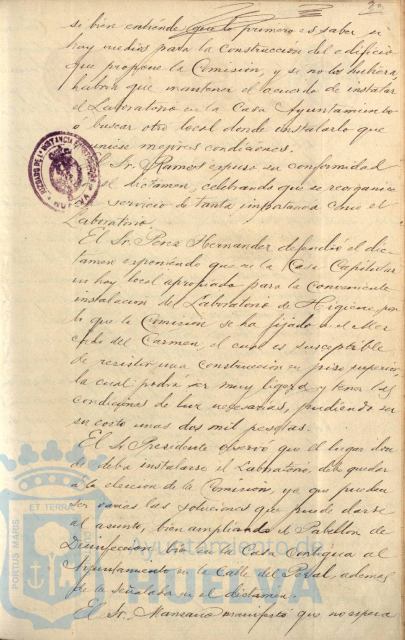 si bien entiende que lo primero es saber si
hay medios para la construccion del edificio
que propone la Comisión, y si no los hubiera,
habrá que mantener el acuerdo de instalar
el Laboratorio en la Casa Ayuntamiento
ó buscar otro local donde instalarlo que
reuniese mejores condiciones.
El Sr. Ramos expuso su conformidad
al dictamen, celebrando que se reorganice
servicio de tanta importancia como el
Laboratorio.
El Sr. Perez Hernandez defendió el dic
tamen exponiendo que en la Casa Capitular
no hay local apropiado para la conveniente
instalacion del Laboratorio de Higiene, por
lo que la Comisión se ha fijado en el Mer
cado del Carmen el cual es susceptible
de resistir una construccion en piso superior,
la cual podrá ser muy ligera y tener las
condiciones de luz necesarias, pudiendo ser
su costo unas dos mil pesetas.
El Sr. Presidente observó que el lugar don
de deba instalarse el Laboratorio, debe quedar
a la eleccion de la Comision, ya que pueden
ser varias las soluciones que puede darse
al asunto, bien ampliando el Pabellon de
Desinfeccion, bien en la Casa contigua al
Ayuntamiento en la Calle del Puerto, ademas
de la señalada en el dictamen.
El Sr. Manzano manifestó que no espera
PORTUS MARIS
ET TERRÆ
Ayuntamiento de
HUELVA